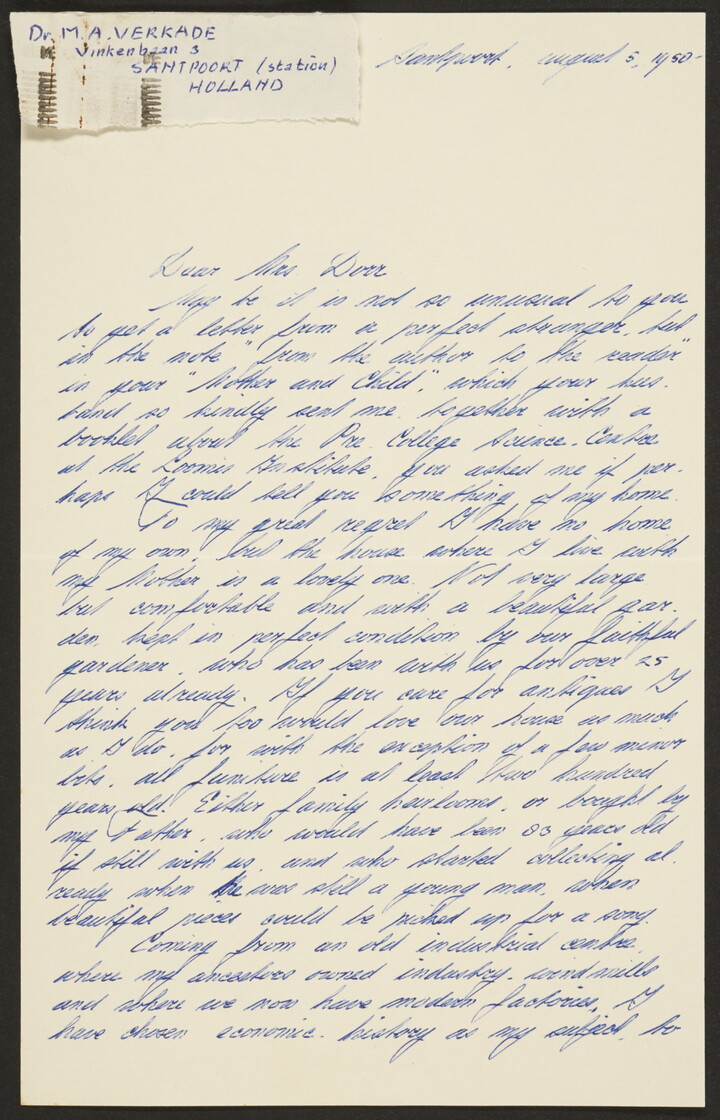 Dr. M. A. VERKADE
Vinkenbaan 3
SANTPOORT (station)
HOLLAND
Santpoort, august 5, 1950.
Dear Mrs Dorr
May be it is not so unusual to you
to get a letter from a perfect stranger, but
in the note "from the author to the reader"
in your "Mother and Child", which your hus-
band so kindly sent me together with a
booklet about the Pre-College Science Centre
at the Loomis Institute, you asked me if per-
haps I could tell you something of my home.
To my great regret I have no home
of my own, but the house where I live with
my Mother is a lovely one. Not very large
but comfortable and with a beautiful gar-
den, kept in perfect condition by our faithful
gardener, who has been with us for over 25
years already. If you care for antiques I
think you too would love our house as much
as I do, for with the exception of a few minor
bits, all funiture is at least two hundred
years old. Either family heirlooms, or bought by
my Father, who would have been 83 years old
if still with us, and who started collecting al-
ready when he was still a young man, when
beautiful pieces could be picked up for a song.
Coming from an old industrial centre,
where my ancestors owned industry-windmills
and where we now have modern factories, I
have chosen economic-history as my subject, to